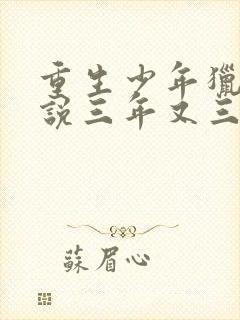 重生少年獵
說三年又三
蘇眉心